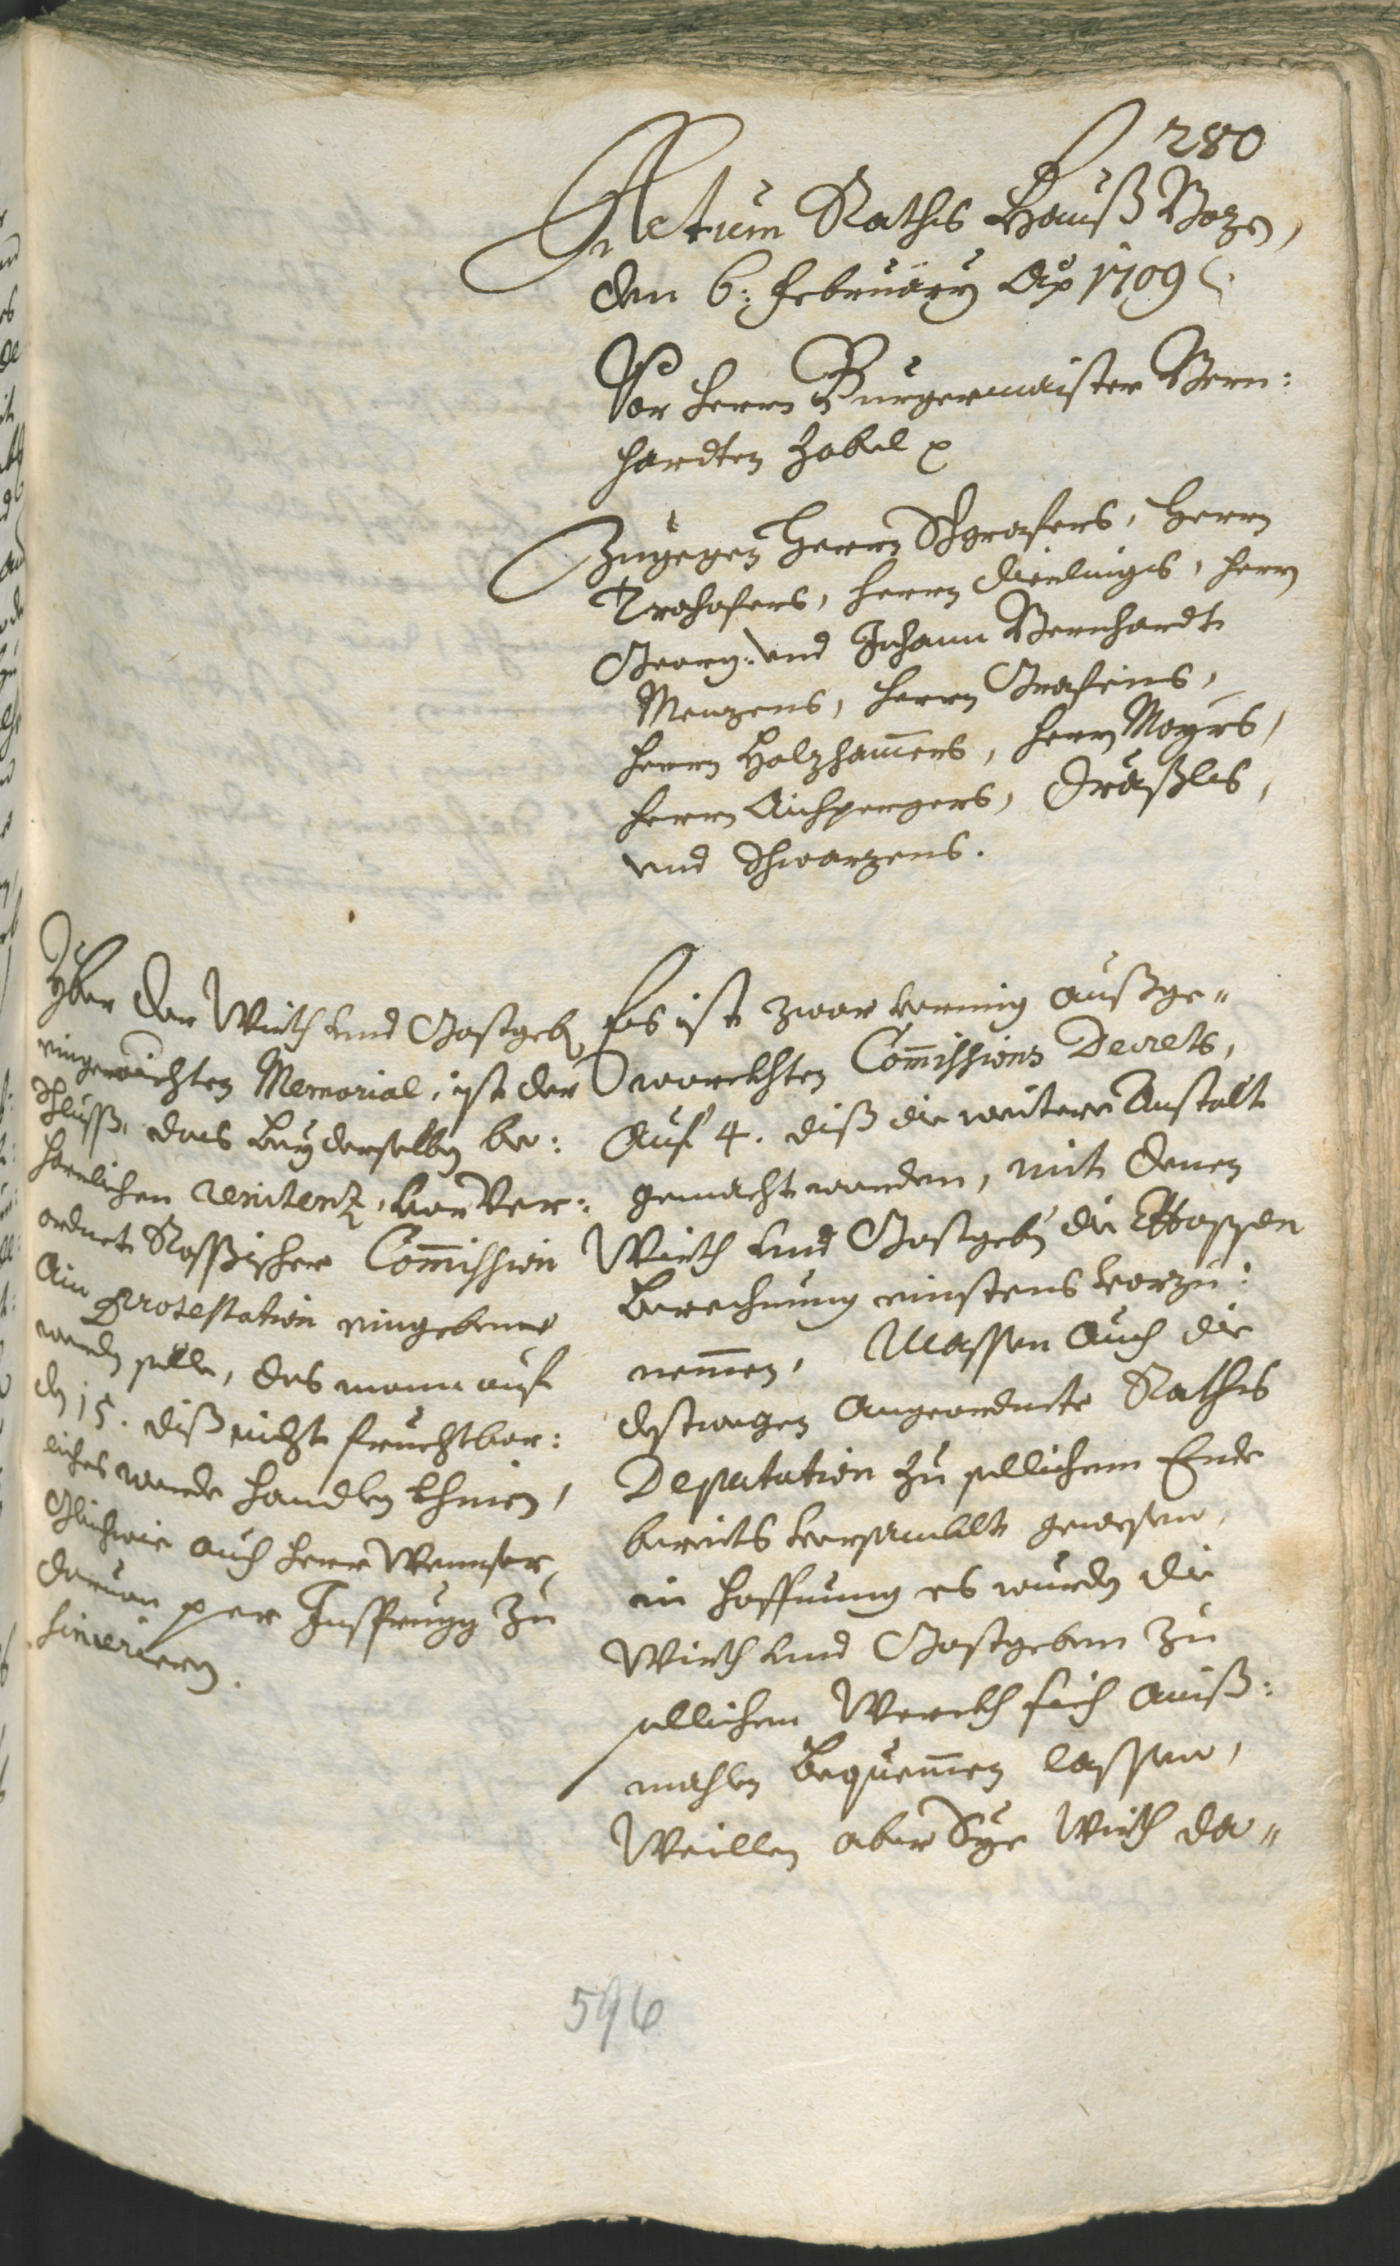 280
Actum Raths Hauß Bozen,
den 6: February Ao 1709
Vor Herrn Burgermaister Bern:
hardten Zobel
Zugegen Herrn Grafers, Herrn
Trohofers, Herrn Dienlings, Herrn
Georg: und Johann Bernhardt
Menzens, Herrn Grafeins,
Herrn Holzhamers, Herrn Mayrs,
Herrn Aichpergers, Dräxls,
und Schwarzens.
Yber der Wirth und Gastgeb
eingeraichten Memorial, ist der
Schluss, das bey derselben be:
harrlichen renitenz, vor Ver:
ordnet Rossischer Commission
Ain protestation eingebenne
werden solle, das mann auf
den 15. diß nicht fruchtbar:
liches werde handlen khinen,
Gleichwie auch Herr Wenser
daruon per Insprugg zu
sincerieren.
Es ist zwar vermig außge"
würckhten Commissions Decrets,
Auf 4. diß die weitere Anstalt
gemacht worden, mit denen
Wirth und Gastgeben die Massen
berechnung einstens vorzu:
nemmen, Massen auch die
destwegen angeordnete Raths
Deputation zu sollichem Ende
bereits versamblt gewesen,
in Hoffnung es wurden die
Wirth und Gastgeben zu
sollichem Werckh sich ainß:
mahlen bequemmen lassen,
Weillen aber Sye Wirth da"
596